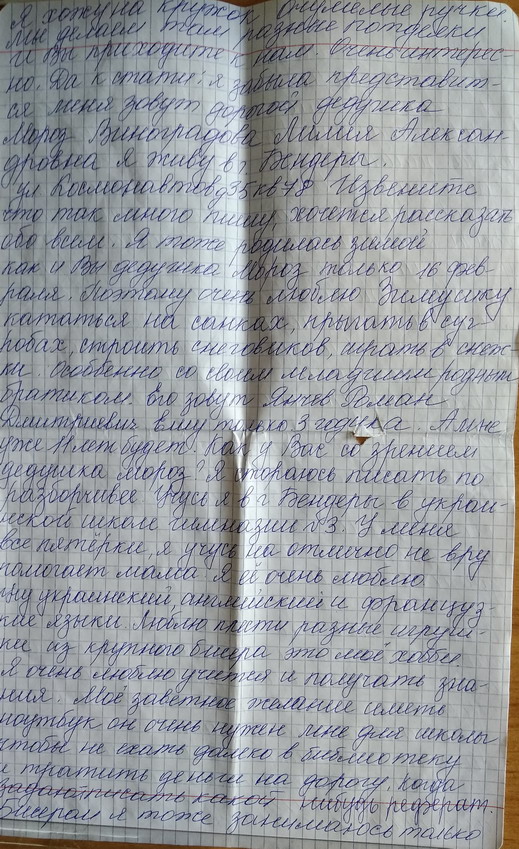 Я хожу на кружок очумелые ручки
Мы делаем там разные поделки
и Вы приходите к нам. Очень интерес-
но. Да к стати: я забыла представит-
ся меня зовут дорогой дедушка
Мороз Виноградова Лилия Алексан-
дровна Я живу в г. Бендеры.
ул Космонавтов д35 кв78 Извените
что так много пишу, хочется рассказать
обо всем. Я тоже родилась зимой
как и Вы дедушка Мороз только 16 фев-
раля. Поэтому очень люблю Зимушку
кататься на санках, прыгать в суг
робах, строить снеговиков, играть в снеж
ки. Особенно со своим младшим родным
братиком. Его зовут Янчев Роман
Дмитриевич Ему только 3 годика. А мне
уже 11 лет будет. Как у Вас со зрением
дедушка Мороз? Я стораюсь писать по
разборчивее Учусь я в г. Бендеры в украи-
нской школе гимназии №3. У меня
все пятёрки, я учусь на отлично не вру
помогает мама. Я её очень люблю
украинский, английский и француз-
кие языки. Люблю плести разные игруш-
ки из крупного бисера это моё хобби
Я очень люблю учится и получать зна-
ния. Моё заветное желание иметь
ноутбук он очень нужен мне для школы
чтобы не ехать далеко в библиотеку
и тратить деньги на дорогу, когда
писать какой реферат.
Бисером я тоже занимаюсь только